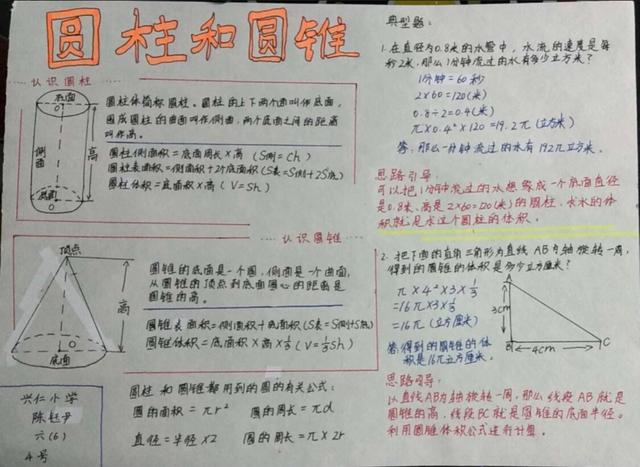 圆柱和圆锥
认识圆柱
底面
O
侧面
高
底面
O
圆柱体简称圆柱。圆柱的上下两个面叫作底面,
围成圆柱的曲面叫作侧面,两个底面之间的距离
叫作高。
圆柱侧面积=底面周长×高(S侧=Ch)
圆柱表面积=侧面积+2个底面积(S表=S侧+2S底)
圆柱体积=底面积×高(V=Sh)
认识圆锥
顶点
高
O
底面
圆锥的底面是一个圆,侧面是一个曲面,
从圆锥的顶点到底面圆心的距离是
圆锥的高。
圆锥表面积=侧面积+底面积(S表=S侧+S底)
圆锥体积=底面积×高×1/3(V=1/3Sh)
兴仁小学
陈钰尹
六(6)
4号
圆柱和圆锥都用到的圆的有关公式:
圆的面积=πr² 圆的周长=πd
直径=半径×2 圆的周长=π×2r
典型题:
1.在直径为0.8米的水管中,水流的速度是每
秒2米,那么1分钟流过的水有多少立方米?
1分钟=60秒
2×60=120(米)
0.8÷2=0.4(米)
π×0.4²×120=19.2π(立方米)
答:那么一分钟流过的水有19.2π立方米。
思路引导:
可以把1分钟流过的水想象成一个底面直径
是0.8米、高是2×60=120(米)的圆柱,求水的体
积就是求这个圆柱的体积。
2.把下面的直角三角形为直线AB为轴旋转一周,
得到的圆锥的体积是多少立方厘米?
π×4²×3×1/3
=16π×3×1/3
=16π(立方厘米)
答:得到的圆锥的体
积是16π立方厘米。
A
3cm
B
4cm
C
思路引导:
以直线AB为轴旋转一周,那么线段AB就是
圆锥的高,线段BC就是圆锥的底面半径。
利用圆锥体积公式进行计算。